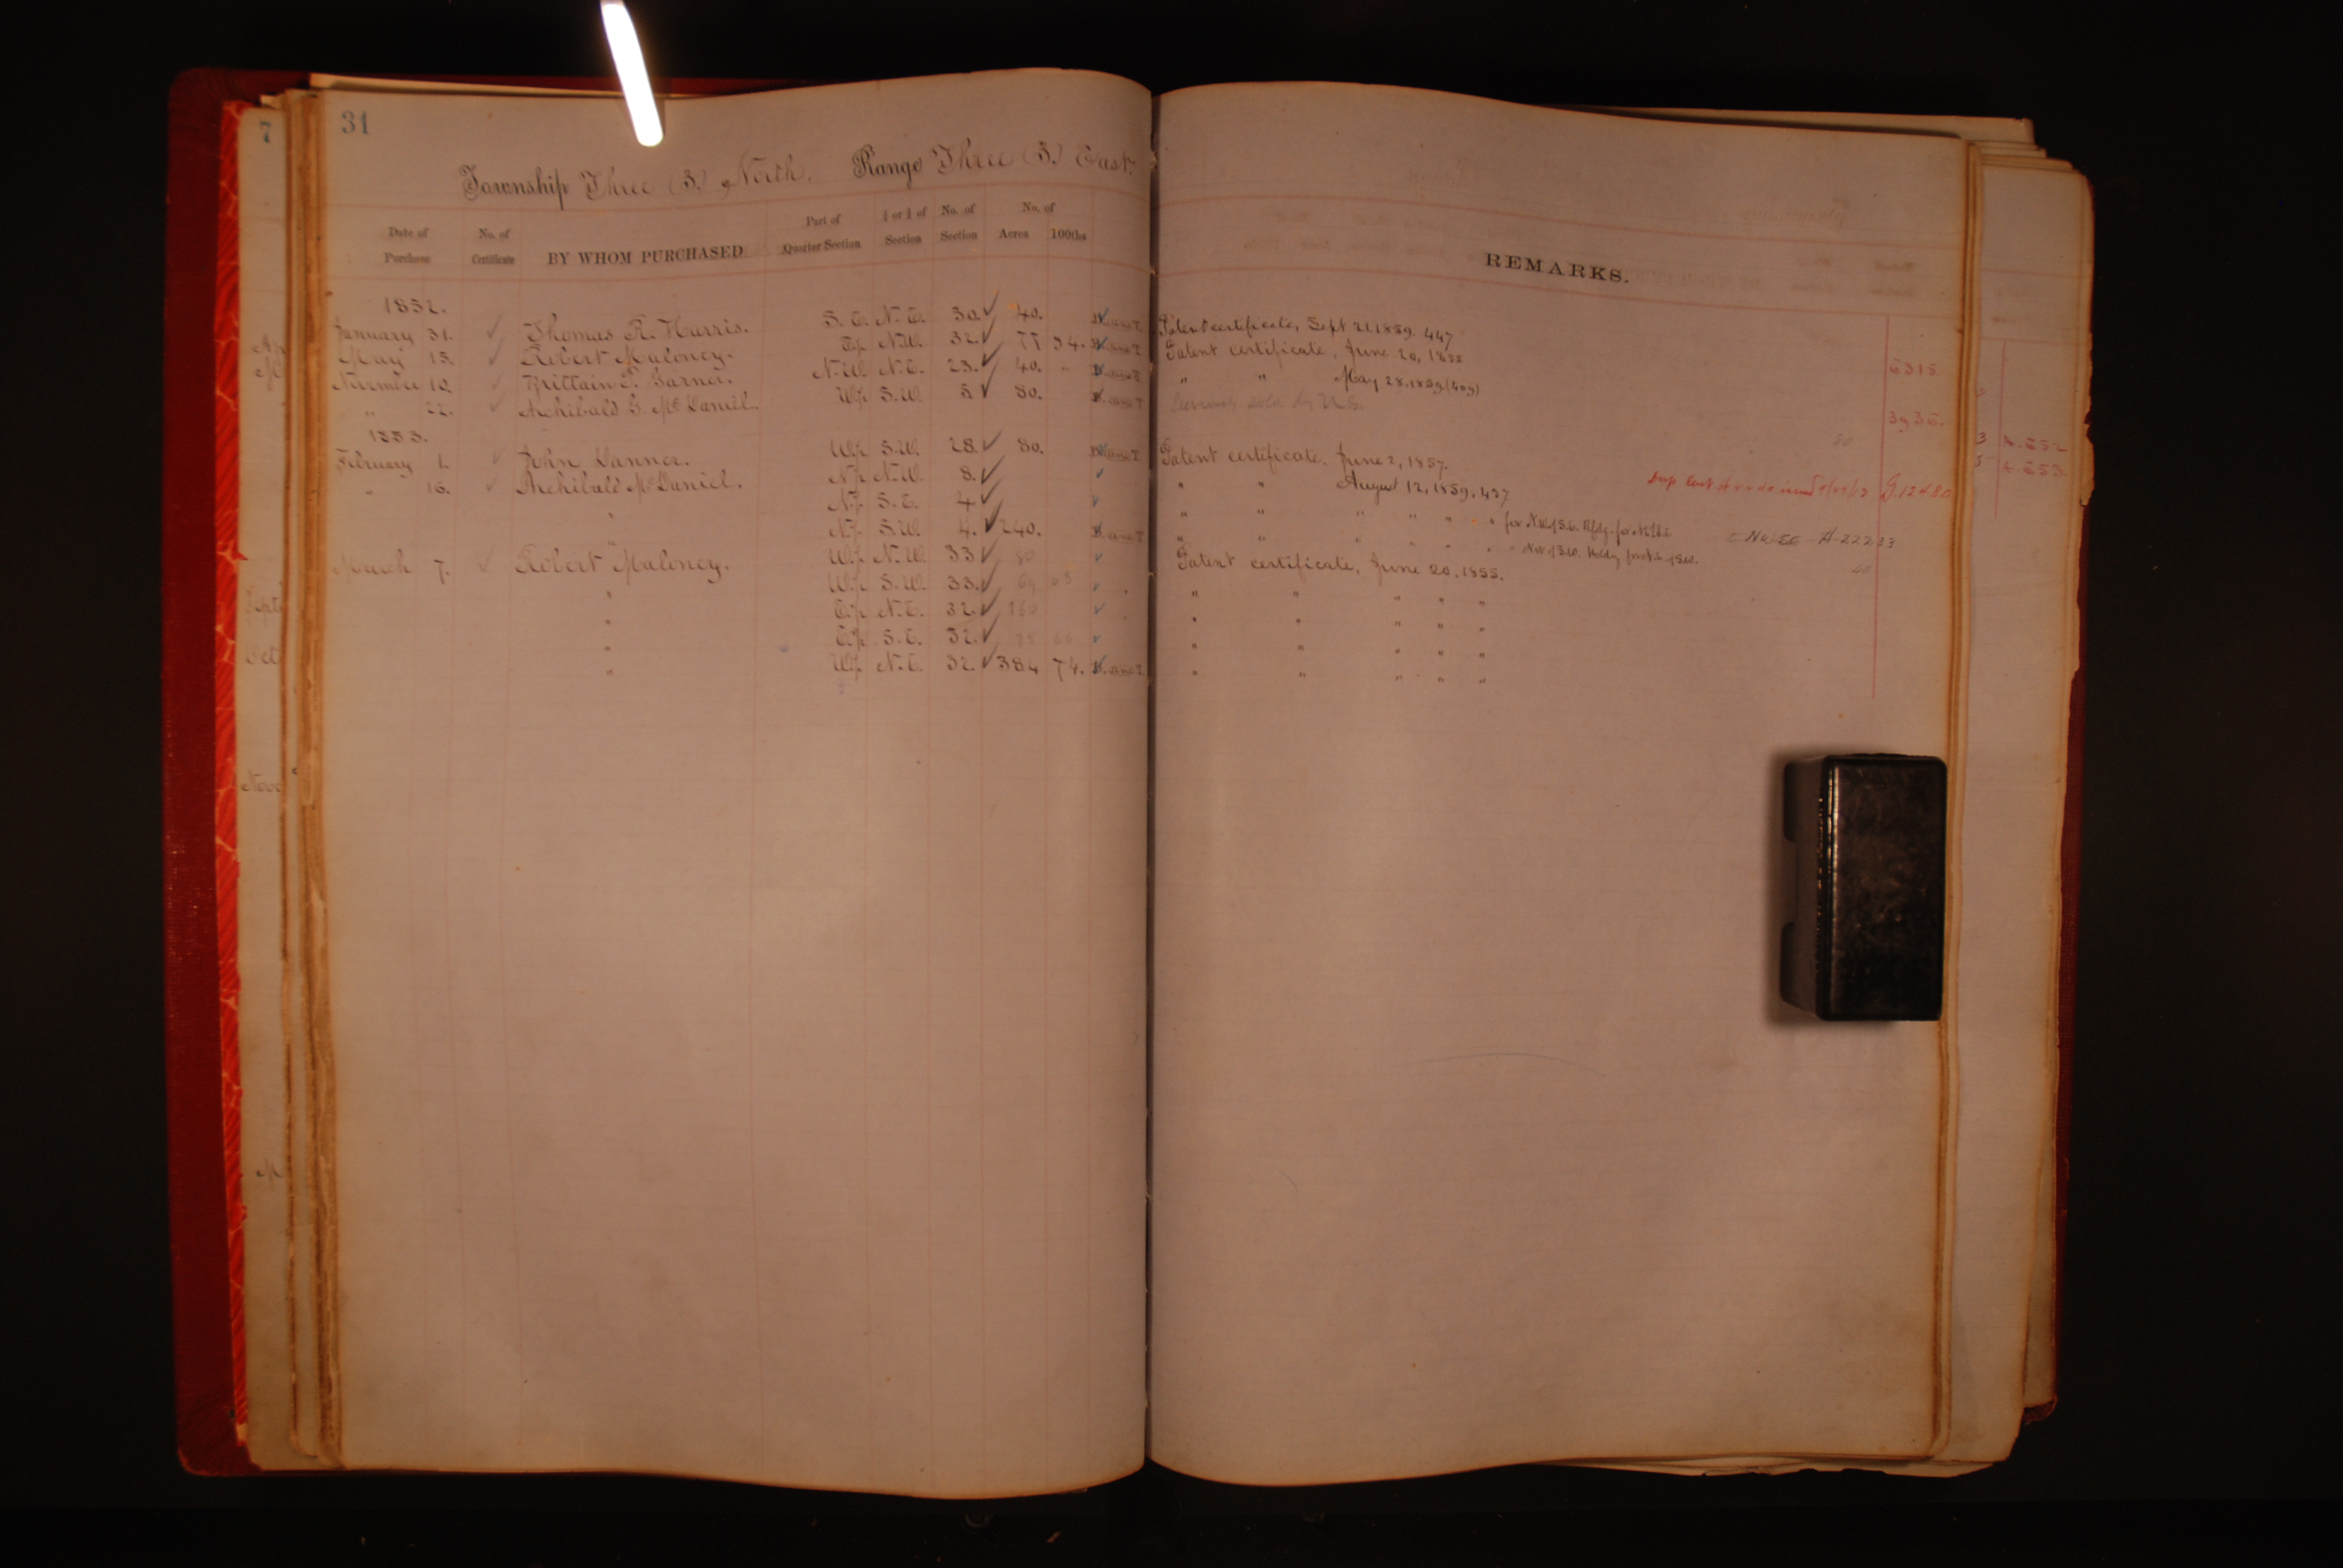 7
31
Township Three (3.) North. Range Three (3.) East.
Date of Purchase No. of Certificate BY WHOM PURCHASED Part of Quarter Section ½ or ¼ of Section No. of Section No. of Acres 100ths REMARKS.
1852.
January 31. Thomas R. Harris. S.E. N.E. 30. 40. Patent certificate, Sept 21. 1859. 447
May 15. Robert Maloney. E½ N.W. 32. 77 94. Patent certificate, June 20, 1855
November 10. Brittain T. Garner. N.W. N.E. 23. 40. " " " May 28. 1859 (409) 5315
" 22. Archibald G. McDaniel. W½ S.W. 5 80. Previously sold by U.S. 3935.
1853.
February 1. John Danner. W½ S.W. 28. 80. Patent certificate, June 2, 1857.
" 16. Archibald McDaniel. N½ N.W. 8. " " August 12, 1859. 437 G.12480
" N½ S.E. 4 " " " " " "
" N½ S.W. 4. 240. " " " " " " NW SE - A-22233
March 7. Robert Maloney. W½ N.W. 33 80 Patent certificate, June 20, 1855. 40
" W½ S.W. 33. 69 08 " " " " "
" E½ N.E. 32. 160 " " " " "
" E½ S.E. 32. 75 66 " " " " "
" W½ N.E. 32. 384 74. " " " " "
A-652
A-653
Sept
Oct
Nove